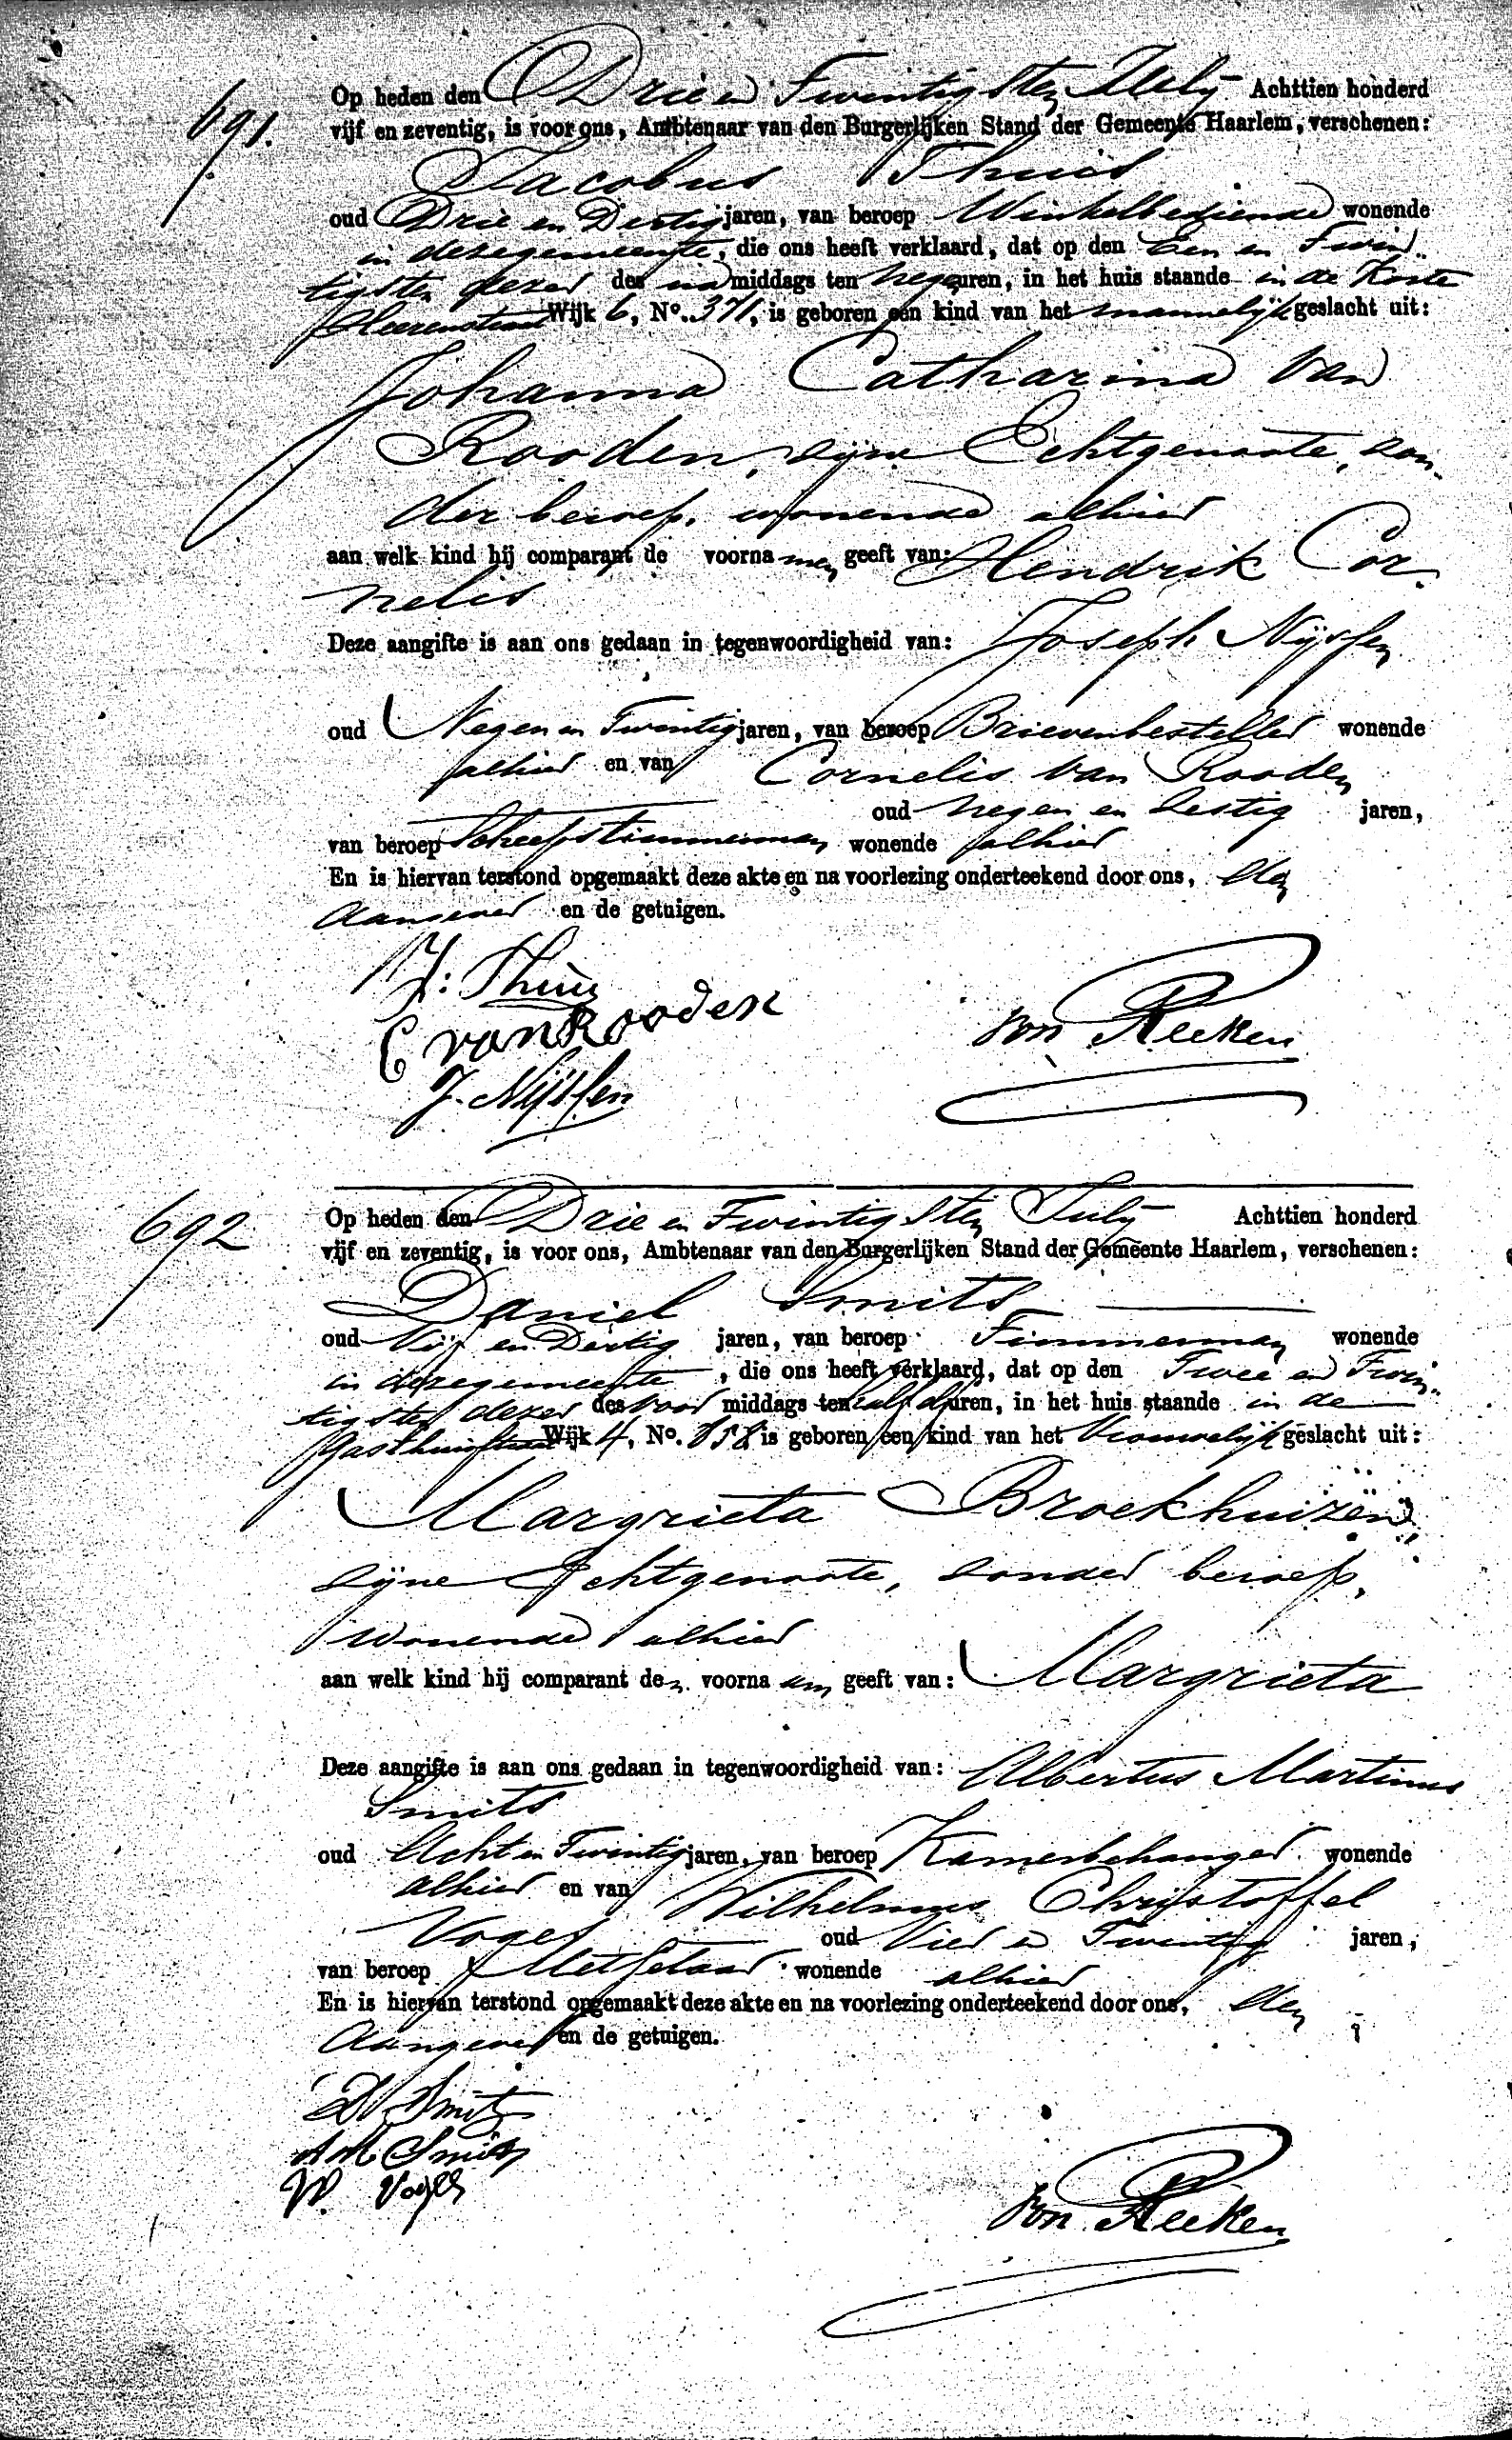 691.
Op heden den Drie en Twintigsten July Achttien honderd
vijf en zeventig, is voor ons, Ambtenaar van den Burgerlijken Stand der Gemeente Haarlem, verschenen:
Jacobus Thuis
oud Drie en Dertig jaren, van beroep Winkelbediende wonende
in dezegemeente, die ons heeft verklaard, dat op den Een en Twin
tigsten dezer des na middags ten negen uren, in het huis staande in de Korte
Heerenstraat Wijk 6, No. 371, is geboren een kind van het mannelijk geslacht uit:
Johanna Catharina van
Rooden, zijne Echtgenoote, zon-
der beroep, wonende alhier
aan welk kind hij comparant de voorna men geeft van: Hendrik Cor-
nelis
Deze aangifte is aan ons gedaan in tegenwoordigheid van: Joseph Nijssen
oud Negen en Twintig jaren, van beroep Brievenbesteller wonende
alhier en van Cornelis van Rooden
oud negen en Zestig jaren,
van beroep Scheepstimmerman wonende alhier
En is hiervan terstond opgemaakt deze akte en na voorlezing onderteekend door ons, den
Aangever en de getuigen.
J. Thuis
C van Rooden
J. Nijssen
von Reeken
692
Op heden den Drie en Twintigsten July Achttien honderd
vijf en zeventig, is voor ons, Ambtenaar van den Burgerlijken Stand der Gemeente Haarlem, verschenen:
Daniel Smits
oud Vijf en Dertig jaren, van beroep Timmerman wonende
in dezegemeente, die ons heeft verklaard, dat op den Twee en Twin-
tigsten dezer des voor middags ten half uren, in het huis staande in de
Gasthuisstraat Wijk 4, No. is geboren een kind van het Vrouwelijk geslacht uit:
Margrieta Broekhuizen,
zijne Echtgenoote, zonder beroep,
wonende alhier
aan welk kind hij comparant den voorna am geeft van: Margrieta
Deze aangifte is aan ons gedaan in tegenwoordigheid van: Albertus Martinus
Smits
oud Acht en Twintig jaren, van beroep Kamerbehanger wonende
alhier en van Wilhelmus Christoffel
Voges oud Vier en Twintig jaren,
van beroep Metselaar wonende alhier
En is hiervan terstond opgemaakt deze akte en na voorlezing onderteekend door ons, den
Aangever en de getuigen.
D Smits
A M Smits
W. Voges
von Reeken